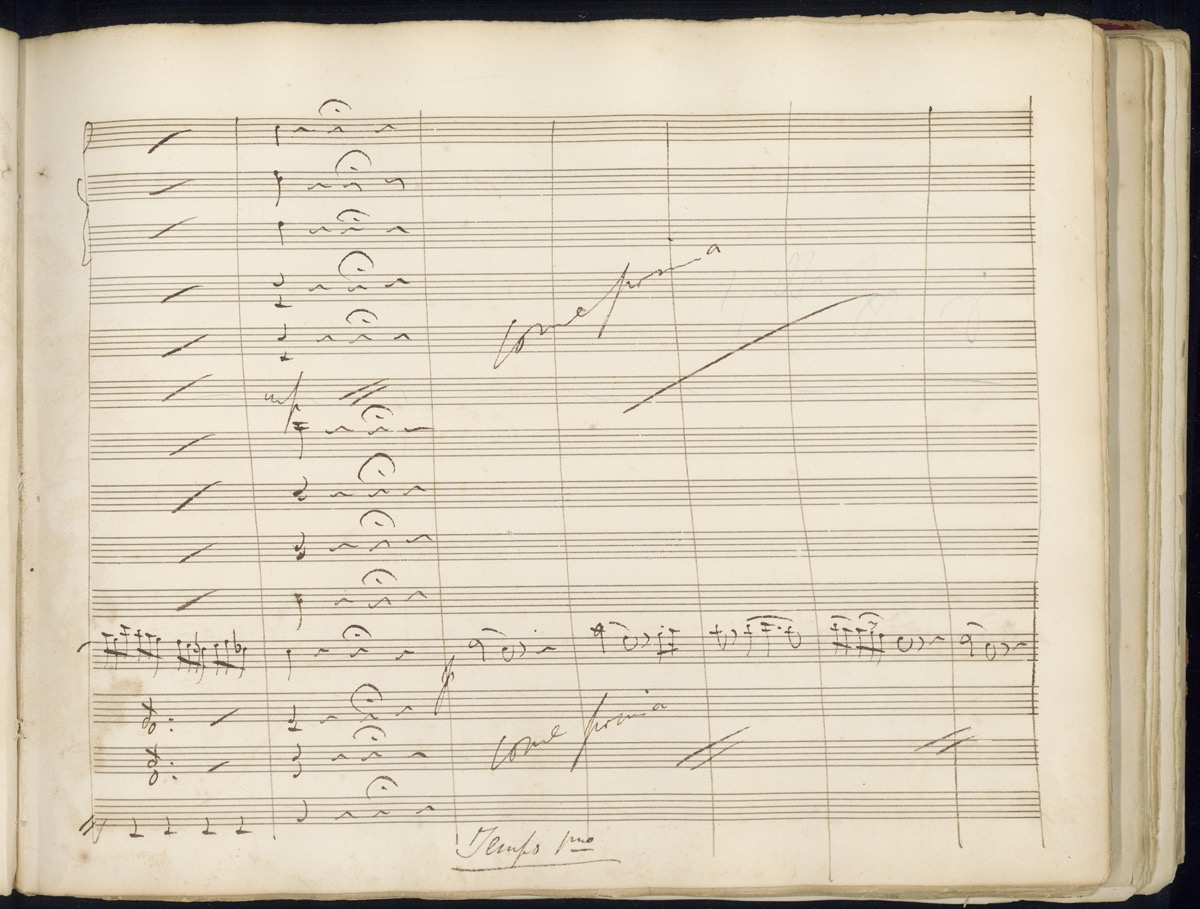 Come prima
p
come prima
Tempo pmo